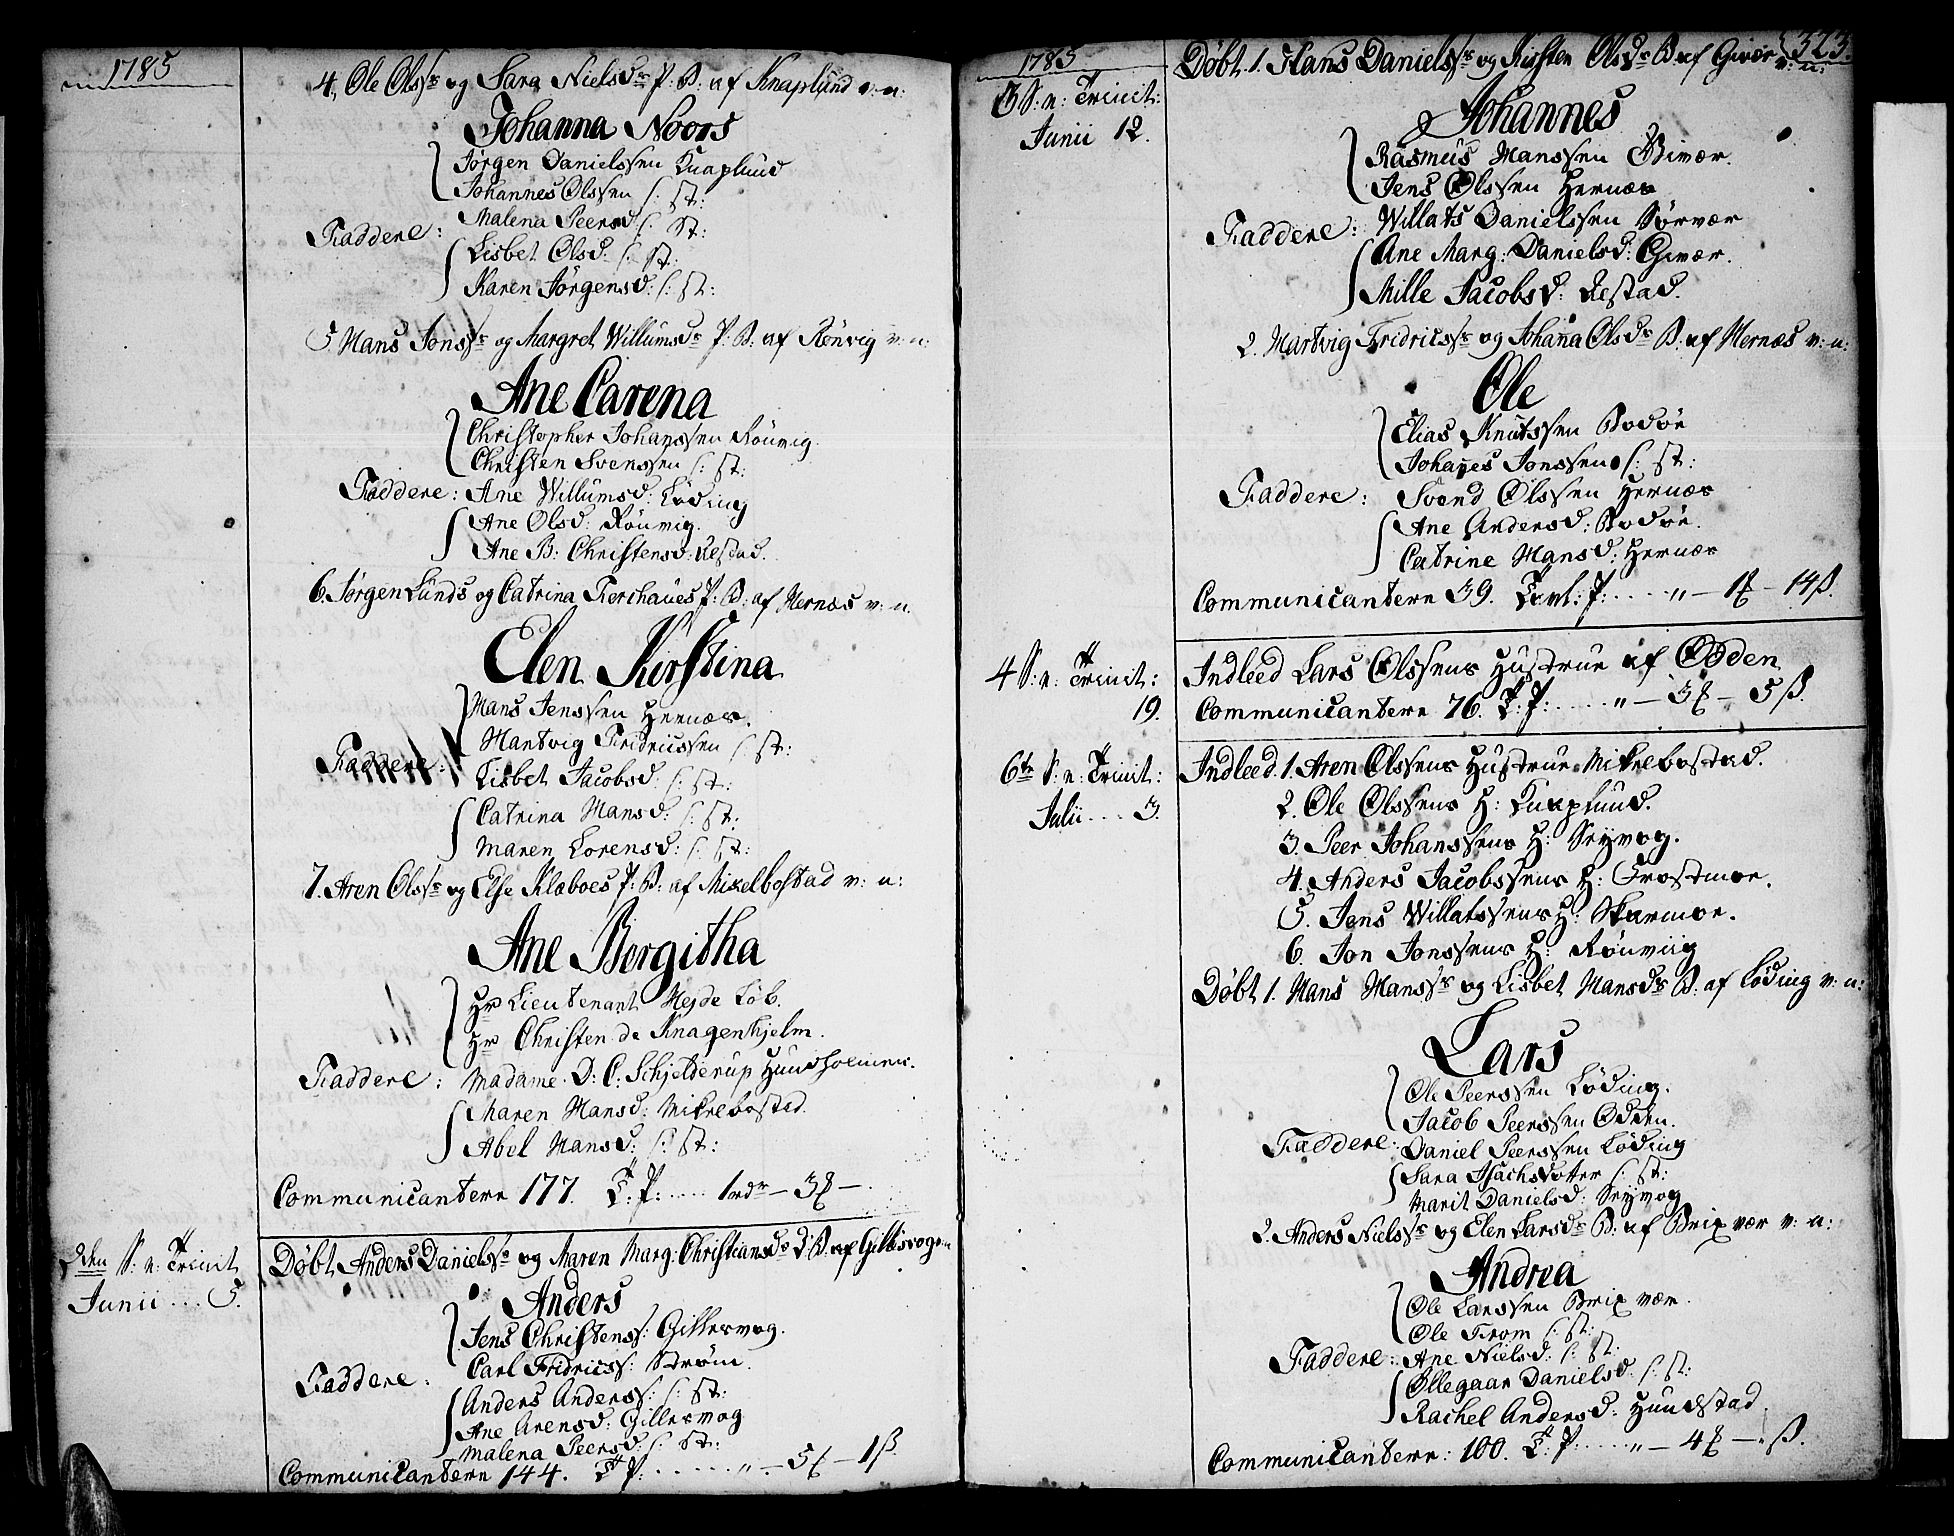 1785
4, Ole Olsſr og Sara Nielsdr P: B: af Knaplund v: n:
Johanna Noors
Jørgen Danielssen Knaplund
Johannes Olssen /: st:
Faddere: Malena Peersd /: st:
Lisbet Olsd: /: st:
Karen Jørgensd: /: st:
5. Hans Jonsſr og Margret Willumsdr P: B: af Rønvig v: n:
Ane Carena
Christopher Johanssen Rønvig.
Christen Svenssen /: st:
Faddere: Ane Willumsd: Løding
Ane Olsd: Rønvig.
Ane B: Christensd: Restad.
6. Jørgen Lunds og Catrina Kerchaues P: B: af Hernæs v: n:
Elen Kirstina
Hans Jenssen Hernæs.
Hartvig Fridricssen /: st:
Faddere: Lisbet Jacobsd: /: st:
Catrina Hansd: /: st:
Maren Lorensd: /: st:
7. Aren Olsſr og Else Klæboes P: B: af Mikelbostad v: n:
Ane Bergitha
Hr Lieutenant Hejde Løb.
Hr Christen de Knagenhjelm.
Faddere: Madame D: C: Schjelderup Hundholmen.
Maren Hansd: Mikelbostad.
Abel Hansd: /: st:
Communicantere 177. T: P: .... 1 rdr – 3 ₰ –
2den S: e: Trinit
Junii ... 5.
Døbt Anders Danielsſr og Maren Marg: Christiansdr P: B: af Gillesvogen
Anders
Jens Christensſ: Gillesvog.
Carl Fridricsſ: Strøm.
Faddere: Anders Andersſ: /: st:
Ane Arensd: Gillesvog
Malena Peersd: /: st:
Communicantere 144. T: P: ...... " – 5 ₰ – 1 ß.
1785
323.
3 S: e: Trinit:
Junii 12.
Døbt 1. Hans Danielsſr og Kirsten Olsdr B: af Givær v: n:
Johannes
Rasmus Hanssen Givær.
Jens Olssen Hernæs
Faddere: Willats Danielssen Sørvær
Ane Marg: Danielsd: Givær.
Mille Jacobsd: Restad.
2. Hartvig Fridricsſr og Johana Olsdr B: af Hernæs v: n:
Ole
Elias Knutssen Bodøe
Johanes Jonssen /: st:
Faddere: Svend Olssen Hernæs
Ane Andersd: Bodøe.
Catrine Hansd: Hernæs
Communicantere 39. P: .... " – 1 ₰ – 14 ß.
4 S: e: Trinit:
19.
Indleed Lars Olssens Hustrue af Odden
Communicantere 76. T: P: .... " – 3 ₰ – 5 ß.
6te S: e: Trinit:
Julii ... 3.
Indleed. 1. Aren Olssens Hustrue Mikelbostad.
2. Ole Olssens H: Knaplund.
3. Peer Johanssens H: Seyvog.
4. Anders Jacobssens H: Trostmoe.
5. Jens Willatssens H: Skarmoe.
6. Jon Jonssens H: Rønviig
Døbt 1. Hans Hansſr og Lisbet Hansdr B: af Løding v: n:
Lars
Ole Peerssen Løding.
Jacob Peerssen Odden.
Faddere: Daniel Peerssen Løding
Sara Isachsdotter /: st:
Marit Danielsd: Seyvog
2. Anders Nielsſr og Elen Larsdr B: af Brixvær v: n:
Andrea
Ole Larssen Brixvær.
Ole From /: st:
Faddere: Ane Nielsd: /: st:
Ollegaar Danielsd /: st:
Rachel Andersd: Hundstad
Communicantere: 100. T: P: .... " – 4 ₰ – " ß.